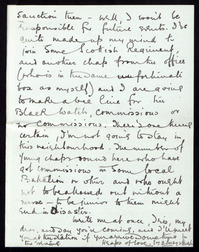 sanction then – well, I won't be
responsible for future events. I've
quite made up my mind to
join some Scottish Regiment,
and another chap from the office
(who is in the same unfortunate
box as myself) and I are going
to make a bee line for the
Black Watch, commissions or
no commissions. There's one thing
certain, I'm not going to stay in
this neighbourhood. The number of
young chaps round here who have
got commissions in some local
Battalion or other and who ought
not to be allowed out without a
nurse – to be junior to them might
end in disaster.
Write me at once, Ibis, my
dear, and say you're coming, and I'll